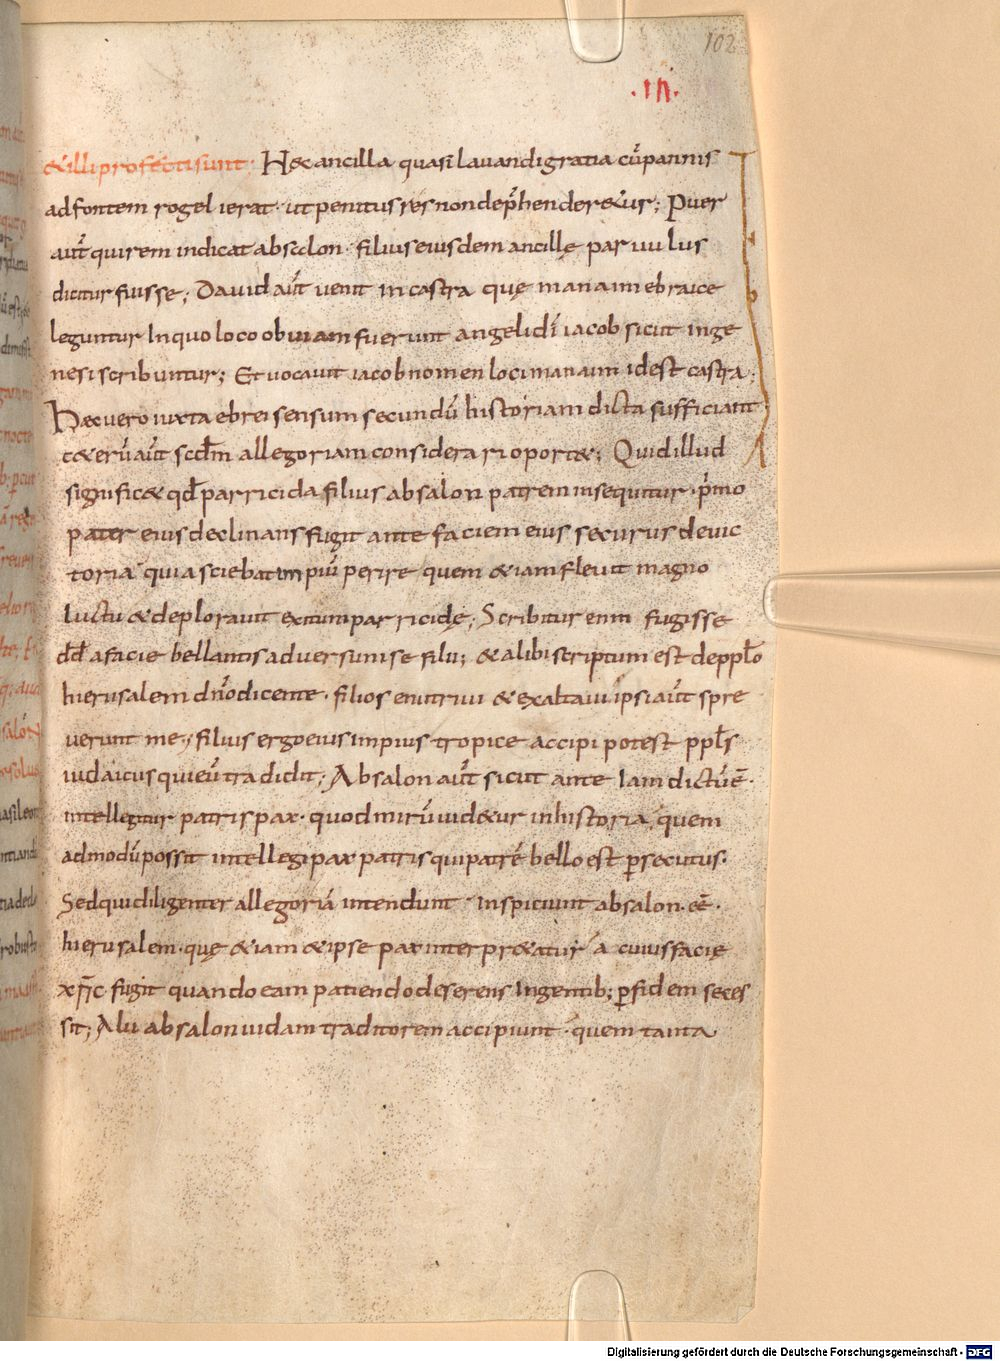 102
.III.
&illi profecti sunt· Hęc ancilla quasi lauandi gratia cū pannis
ad fontem rogel ierat· ut penitus res non dep̄hender&ur; Puer
aut̄ qui rem indicat absalon· filius eiusdem ancillę paruulus
dicitur fuisse; Dauid aut̄ uenit in castra quę manaim ebraice
leguntur In quo loco obuiam fuerunt angeli dī iacob sicut in ge
nesi scribuntur; Et uocauit iacob nomen loci manaim id est castra;
Haec uero iuxta ebrei sensum secundū historiam dicta sufficiant
c&erū aut̄ scdm̄ allegoriam considerari oport&; Quid illud
signific& qđ parricida filius absalon patrem insequitur· p̄mo
pater eius declinans fugit ante faciem eius securus de uic
toria· quia sciebat impiū perire quem &iam fleuit magno
luctu & deplorauit exitum parricidę; Scribitur enim fugisse
dd̄ a facie bellantis aduersum se filii; & alibi scriptum est de ppl̄o
hierusalem dn̄o dicente· filios enutriui & exaltaui ipsi aut̄ spre
uerunt me; filius ergo eius impius tropice accipi potest ppl̄s
iudaicus qui eū tradidit; Absalon aut̄ sicut ante Iam dictū ē·
intellegitur patris pax· quod mirū uid&ur in historia, quem
admodū possit intellegi pax patris qui patrē bello est p̱secutus·
Sed qui diligenter allegoriā intendunt· Inspiciunt absalon· eē·
hierusalem· quę &iam & ipse pax interpr&atur a cuius facie
xp̄ic· fugit quando eam patiendo deserens In gentib; p̱ fidem seces
sit; Alii absalon iudam traditorem accipiunt· quem tanta
Digitalisierung gefördert durch die Deutsche Forschungsgemeinschaft - DFG